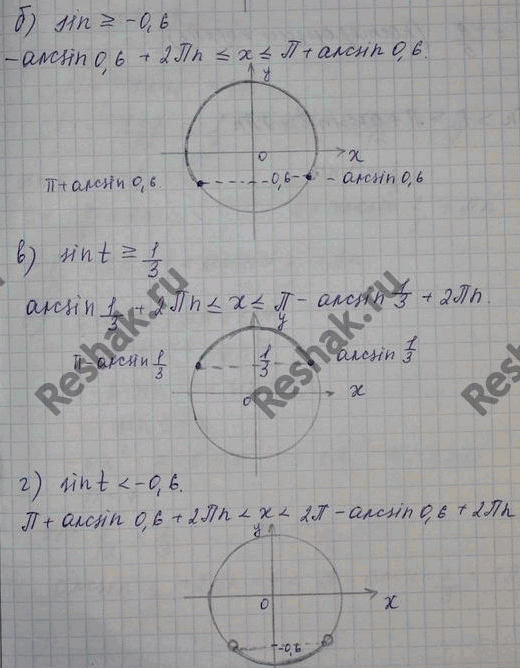 б) sin ≥ -0,6
-arcsin 0,6 + 2Пn ≤ x ≤ П + arcsin 0,6.
y
0
x
П + arcsin 0,6
-0,6
- arcsin 0,6
в) sin t ≥ 1/3
arcsin 1/3 + 2Пn ≤ x ≤ П - arcsin 1/3 + 2Пn.
y
П - arcsin 1/3
1/3
arcsin 1/3
0
x
Reshak.ru
Reshak.ru
г) sin t < -0,6.
П + arcsin 0,6 + 2Пn < x < 2П - arcsin 0,6 + 2Пn
y
0
x
-0,6